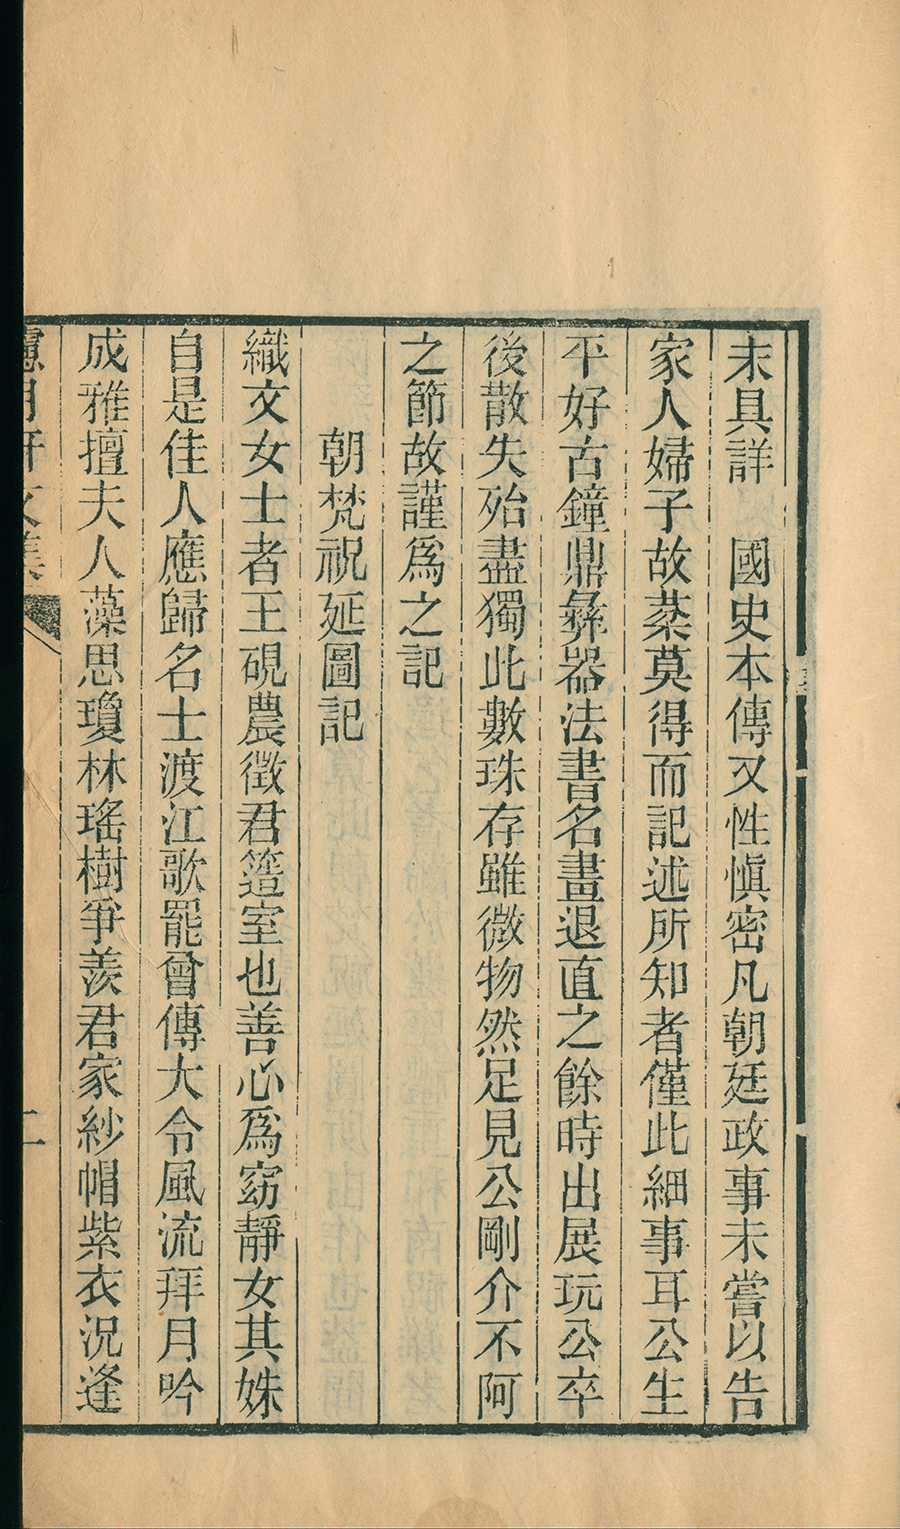 末具詳　國史本傳又性愼密凡朝廷政事未嘗以告
家人婦子故菜莫得而記述所知者僅此細事耳公生
平好古鐘鼎彝器法書名畫退直之餘時出展玩公卒
後散失殆盡獨此數珠存雖微物然足見公剛介不阿
之節故謹爲之記
朝梵祝延圖記
織文女士者王硯農徵君簉室也善心爲窈靜女其姝
自是佳人應歸名士渡江歌罷曾傳大令風流拜月吟
成雅擅夫人藻思瓊林瑤樹爭羨君家紗帽紫衣況逢
文集
二